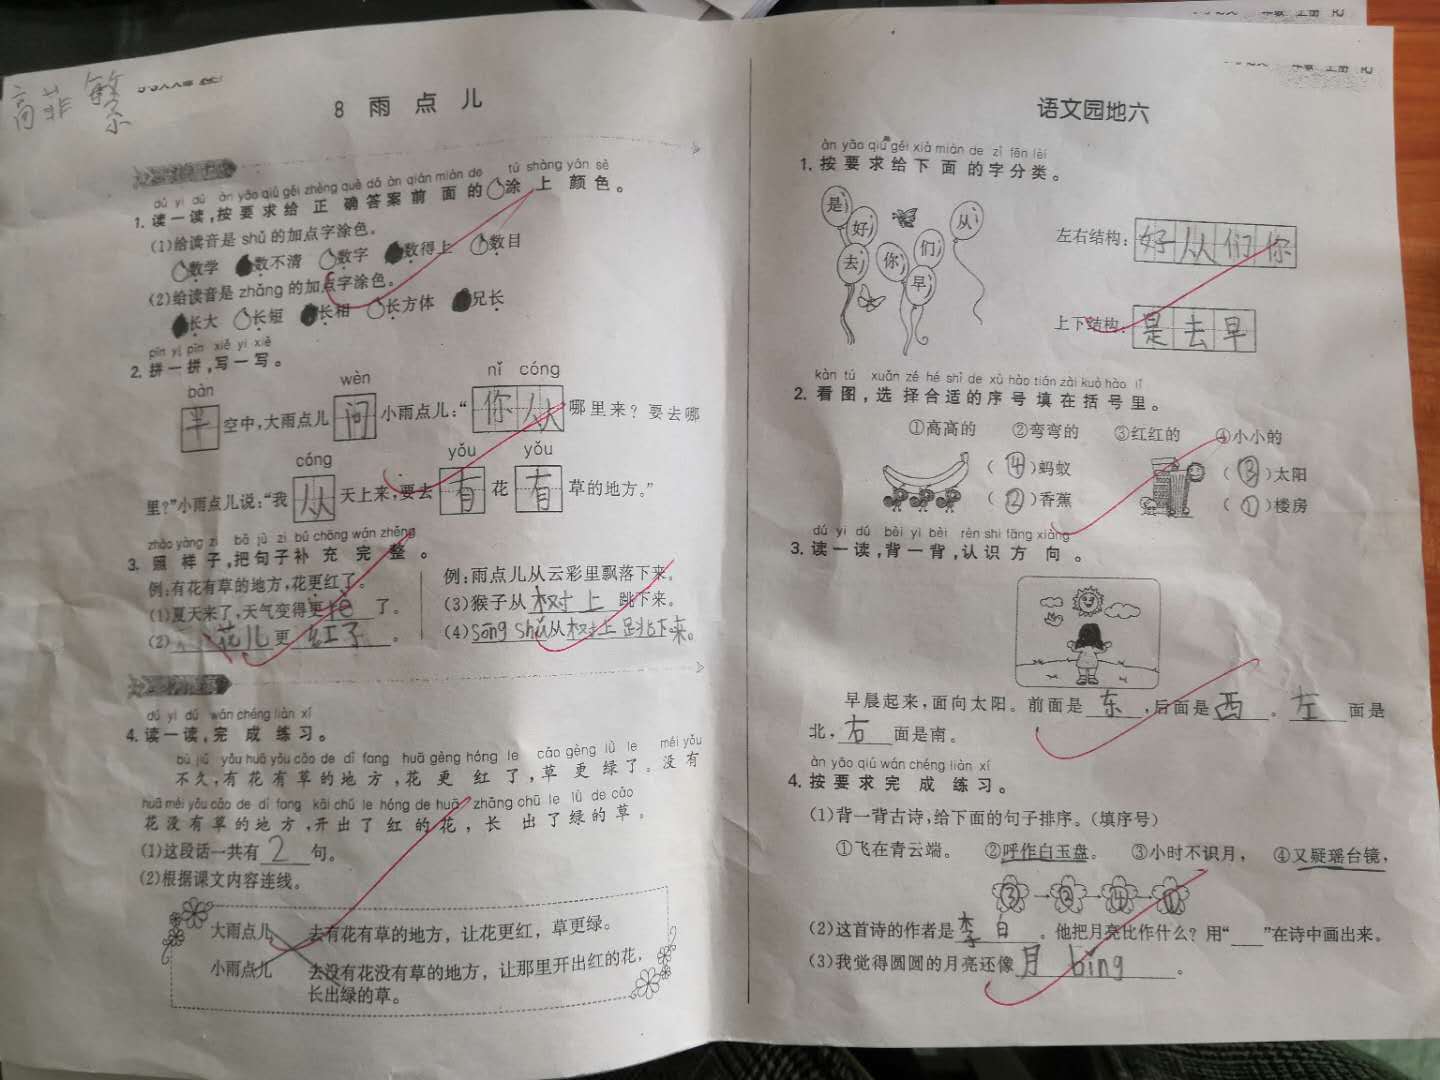 高菲繁
8 雨 点 儿
dú yi dú àn yāo qiú gěi zhèng què dá àn qián miàn de tú shàng yán sè
1. 读一读,按要求给正确答案前面的 涂上颜色。
(1)给读音是 shǔ 的加点字涂色。
数学 数不清 数字 数得上 数目
(2)给读音是 zhǎng 的加点字涂色。
长大 长短 长相 长方体 兄长
pīn yi pīn xiě yi xiě
2. 拼一拼,写一写。
bàn wèn nǐ cóng
半 空中,大雨点儿 问 小雨点儿:“ 你 从 哪里来？要去哪
cóng yǒu yǒu
里?”小雨点儿说:“我 从 天上来,要去 有 花 有 草的地方。”
zhào yàng zi bǎ jù zi bǔ chōng wán zhěng
3. 照样子,把句子补充完整。
例:有花有草的地方,花更红了。
(1)夏天来了,天气变得更 了。
(2) 花儿 更 红了 。
例:雨点儿从云彩里飘落下来。
(3)猴子从 树上 跳下来。
(4) sōng shǔ从树上跳下来。
dú yi dú wán chéng liàn xí
4. 读一读,完成练习。
bù jiǔ yǒu huā yǒu cǎo de dì fang huā gèng hóng le cǎo gèng lǜ le méi yǒu
不久,有花有草的地方,花更红了,草更绿了。没有
huā méi yǒu cǎo de dì fang kāi chū le hóng de huā zhǎng chū le lǜ de cǎo
花没有草的地方,开出了红的花,长出了绿的草。
(1)这段话一共有 2 句。
(2)根据课文内容连线。
大雨点儿 去有花有草的地方，让花更红，草更绿。
小雨点儿 去没有花没有草的地方，让那里开出红的花，
长出绿的草。
语文园地六
àn yāo qiú gěi xià miàn de zì fēn lèi
1. 按要求给下面的字分类。
是 好 从 去 你 们 早
左右结构: 好 从 们 你
上下结构: 是 去 早
kàn tú xuǎn zé hé shì de xù hào tián zài kuò hào lǐ
2. 看图,选择合适的序号填在括号里。
①高高的 ②弯弯的 ③红红的 ④小小的
(④)蚂蚁 (③)太阳
(②)香蕉 (①)楼房
dú yi dú bèi yi bèi rèn shi fāng xiàng
3. 读一读,背一背,认识方向。
早晨起来,面向太阳。前面是 东 ,后面是 西 。 左 面是
北, 右 面是南。
àn yāo qiú wán chéng liàn xí
4. 按要求完成练习。
(1)背一背古诗,给下面的句子排序。(填序号)
①飞在青云端。 ②呼作白玉盘。 ③小时不识月, ④又疑瑶台镜,
③→②→④→①
(2)这首诗的作者是 李白 。他把月亮比作什么？用“___”在诗中画出来。
(3)我觉得圆圆的月亮还像 月 bǐng 。